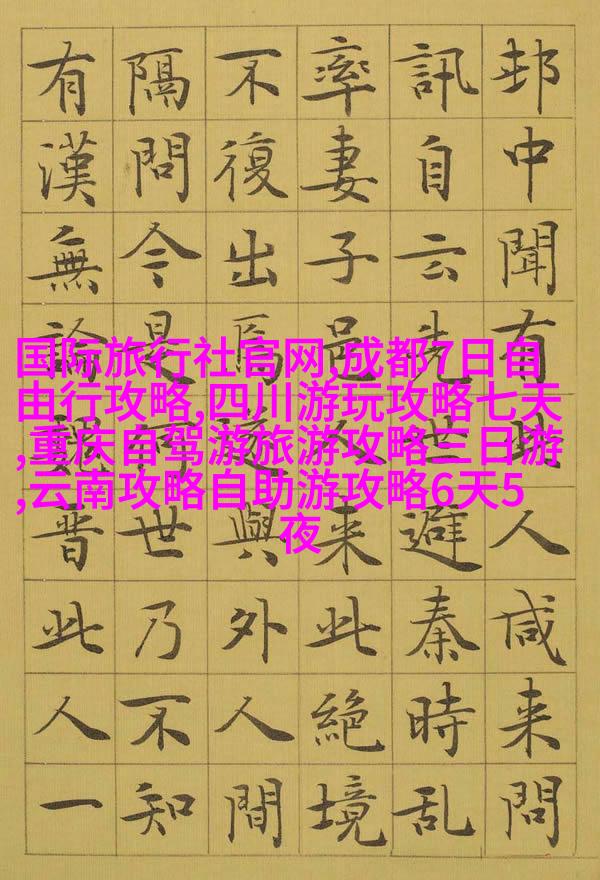 邨中聞有此人咸来問
訊自云先世避秦時乱
率妻子邑人来此絶境
不復出焉遂與外人間
隔問今是何世乃不知
有漢無論魏晋此人一
国际旅行社官网,成都7日自
由行攻略,四川游玩攻略七天
,重庆自驾游旅游攻略三日游
,云南攻略自助游攻略6天5
夜